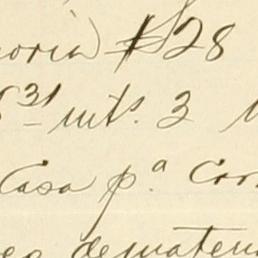 oria $28
31 mts. 3
Casa pª Cor
de materi